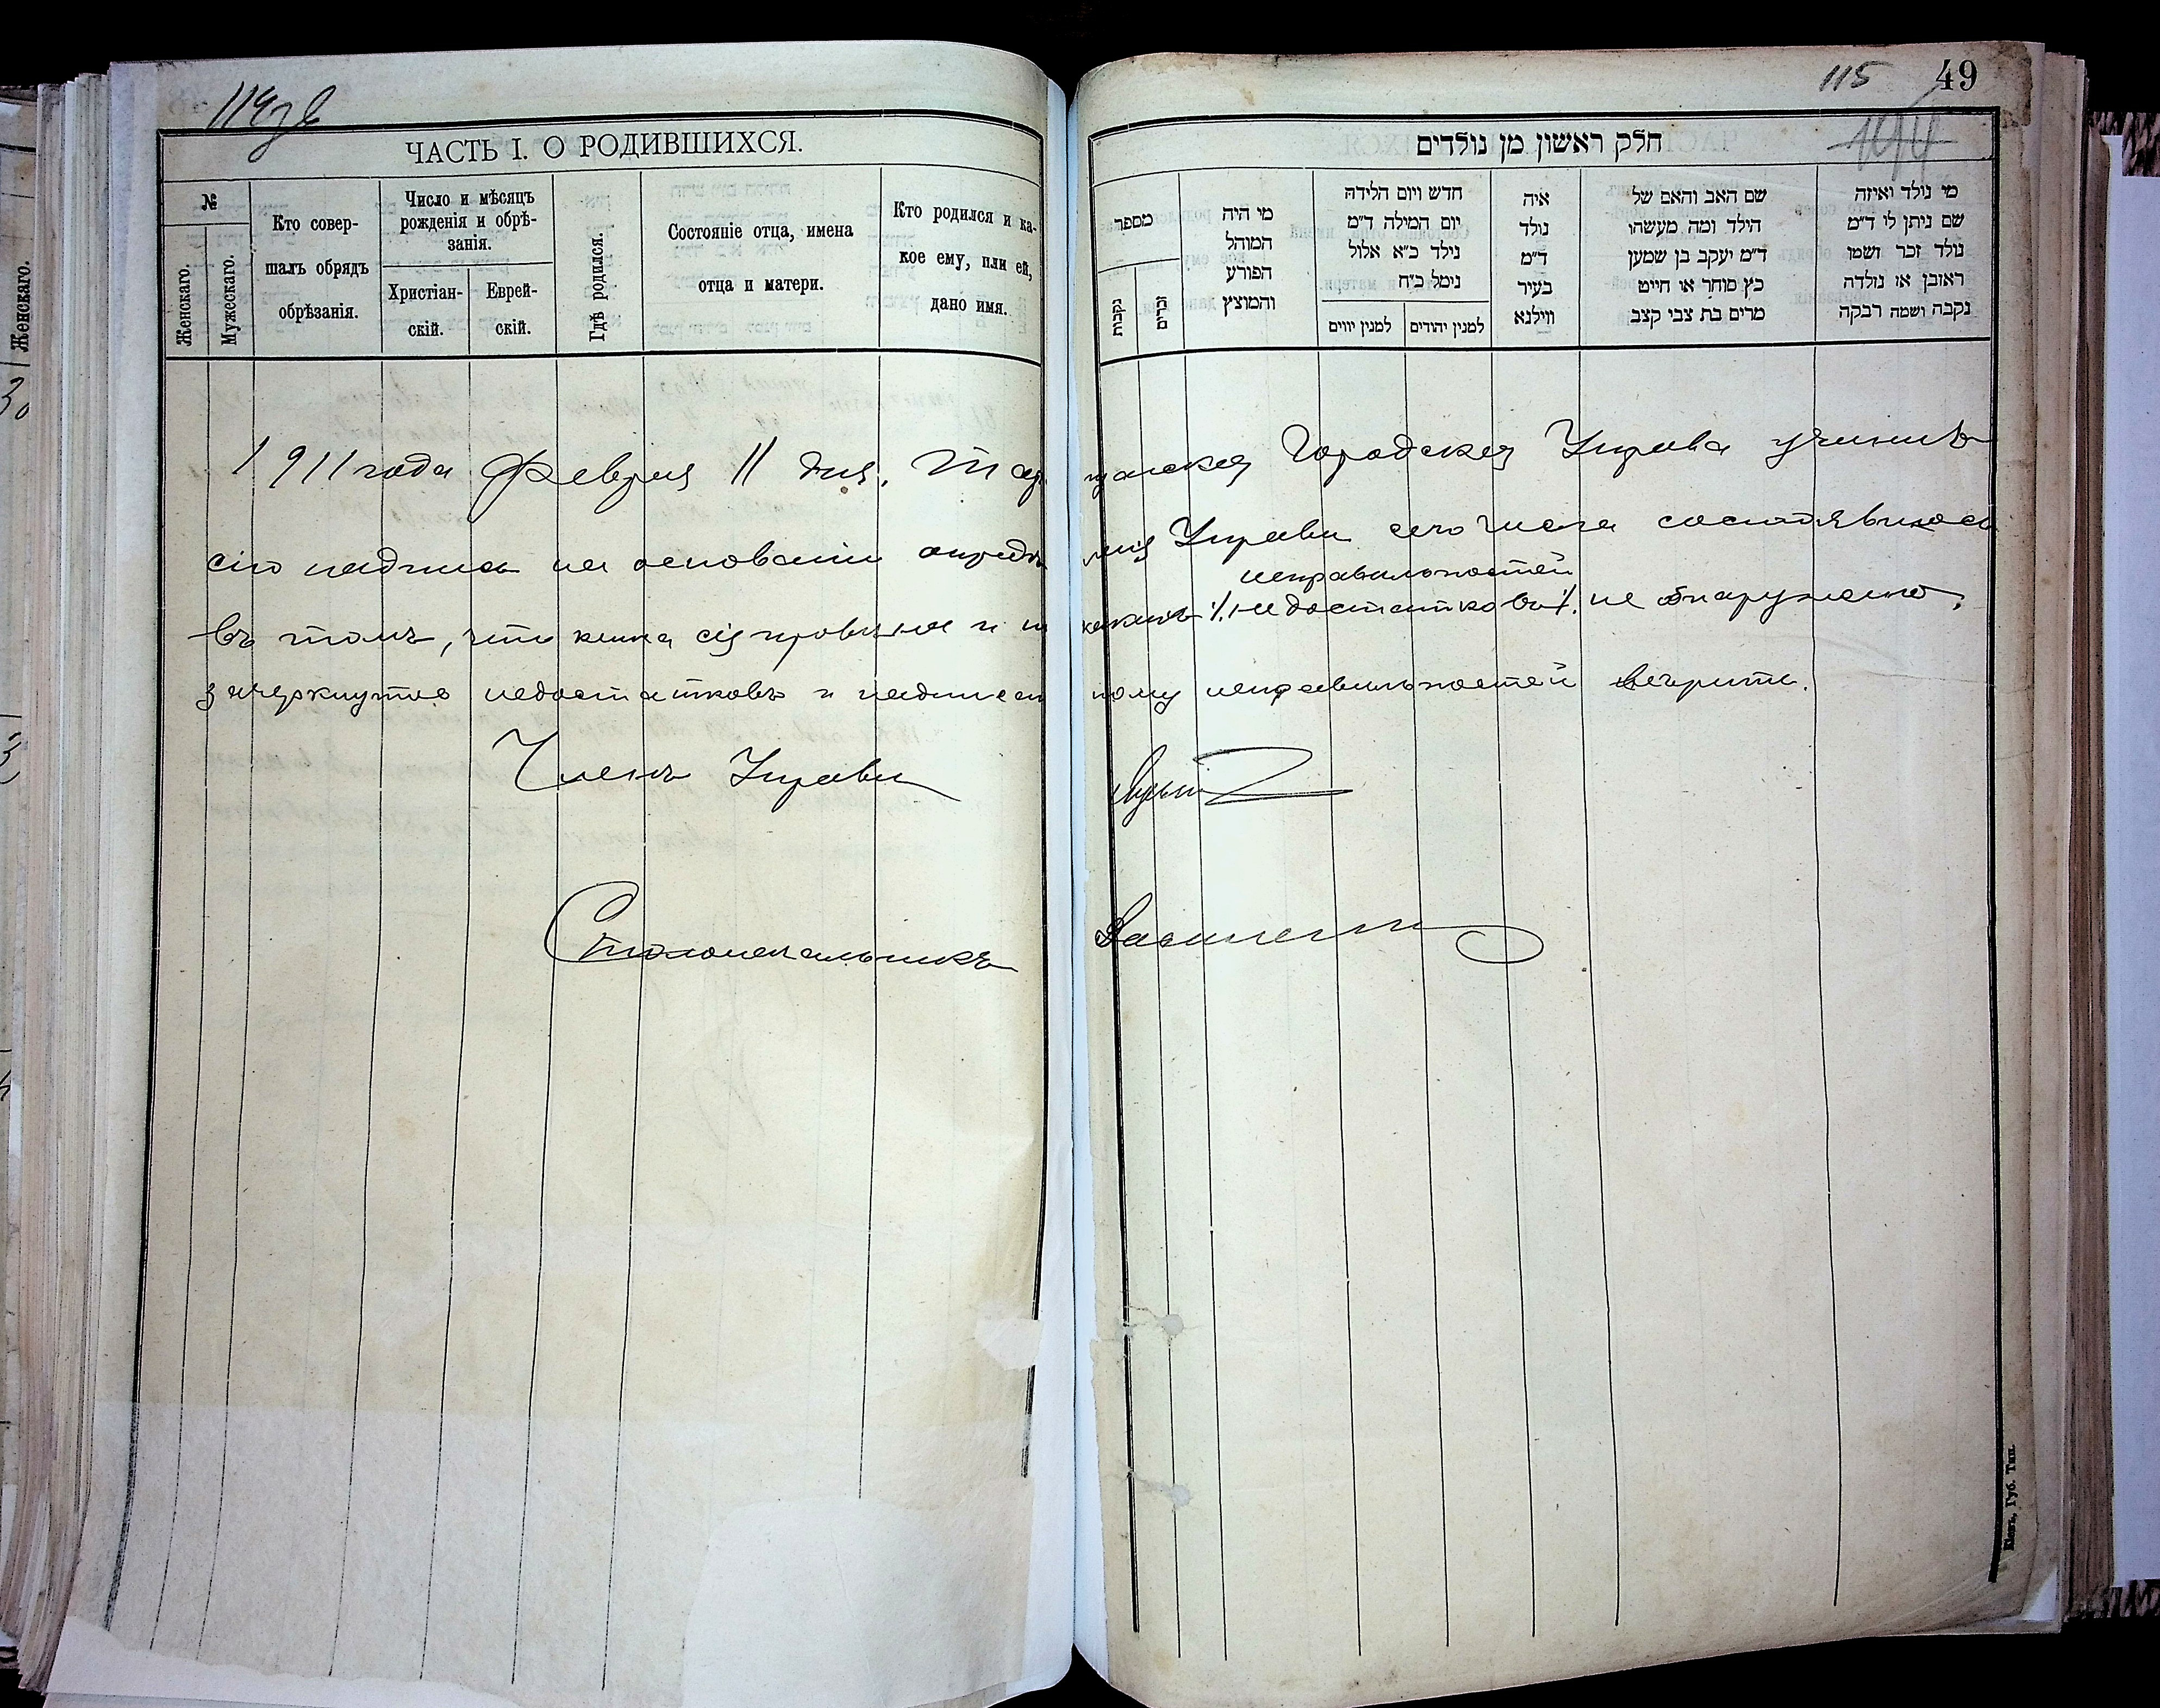 114 зв
ЧАСТЬ I. О РОДИВШИХСЯ.
№
Женскаго.
Мужескаго.
Кто совер-
шалъ обрядъ
обрѣзанія.
Число и мѣсяцъ
рожденія и обрѣ-
занія.
Христіан-
скій.
Еврей-
скій.
Гдѣ родился.
Состояніе отца, имена
отца и матери.
Кто родился и ка-
кое ему, или ей,
дано имя.
115
49
חלק ראשון מן נולדים
מספר
נקבות
זכרים
מי היה
המוהל
הפורע
והמוצץ
חדש ויום הלידה
יום המילה ד״מ
נילד כ״א אלול
נימל כ״ח
למנין יווים
למנין יהודים
איה
נולד
ד״מ
בעיר
ווילנא
שם האב והאם של
הילד ומה מעשהו
ד״מ יעקב בן שמען
כץ סוחר או חייט
מרים בת צבי קצב
מי נולד ואיזה
שם ניתן לי ד״מ
נולד זכר ושמו
ראובן או נולדה
נקבה ושמה רבקה
1911 года Февраля 11 дня, Тара щанская Городская Управа учинила
сію надпись на основаніи опредѣ ленія Управы сего числа состоявшагося
неправильностей
въ томъ, что книга сія провѣрена и ни какихъ недостатковъ не обнаружено.
зачеркнутое недостатковъ и надписан ному неправильностей вѣрить.
Членъ Управы
Столоначальникъ
Кіевъ, Губ. Тип.
Женскаго.